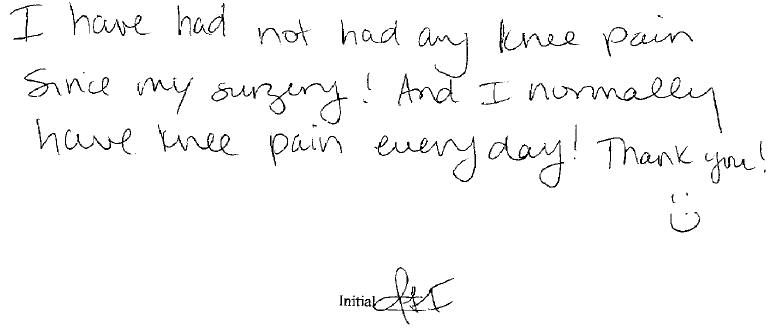 I have had not had any knee pain
Since my surgery! And I normally
have knee pain everyday! Thank you!
Initial